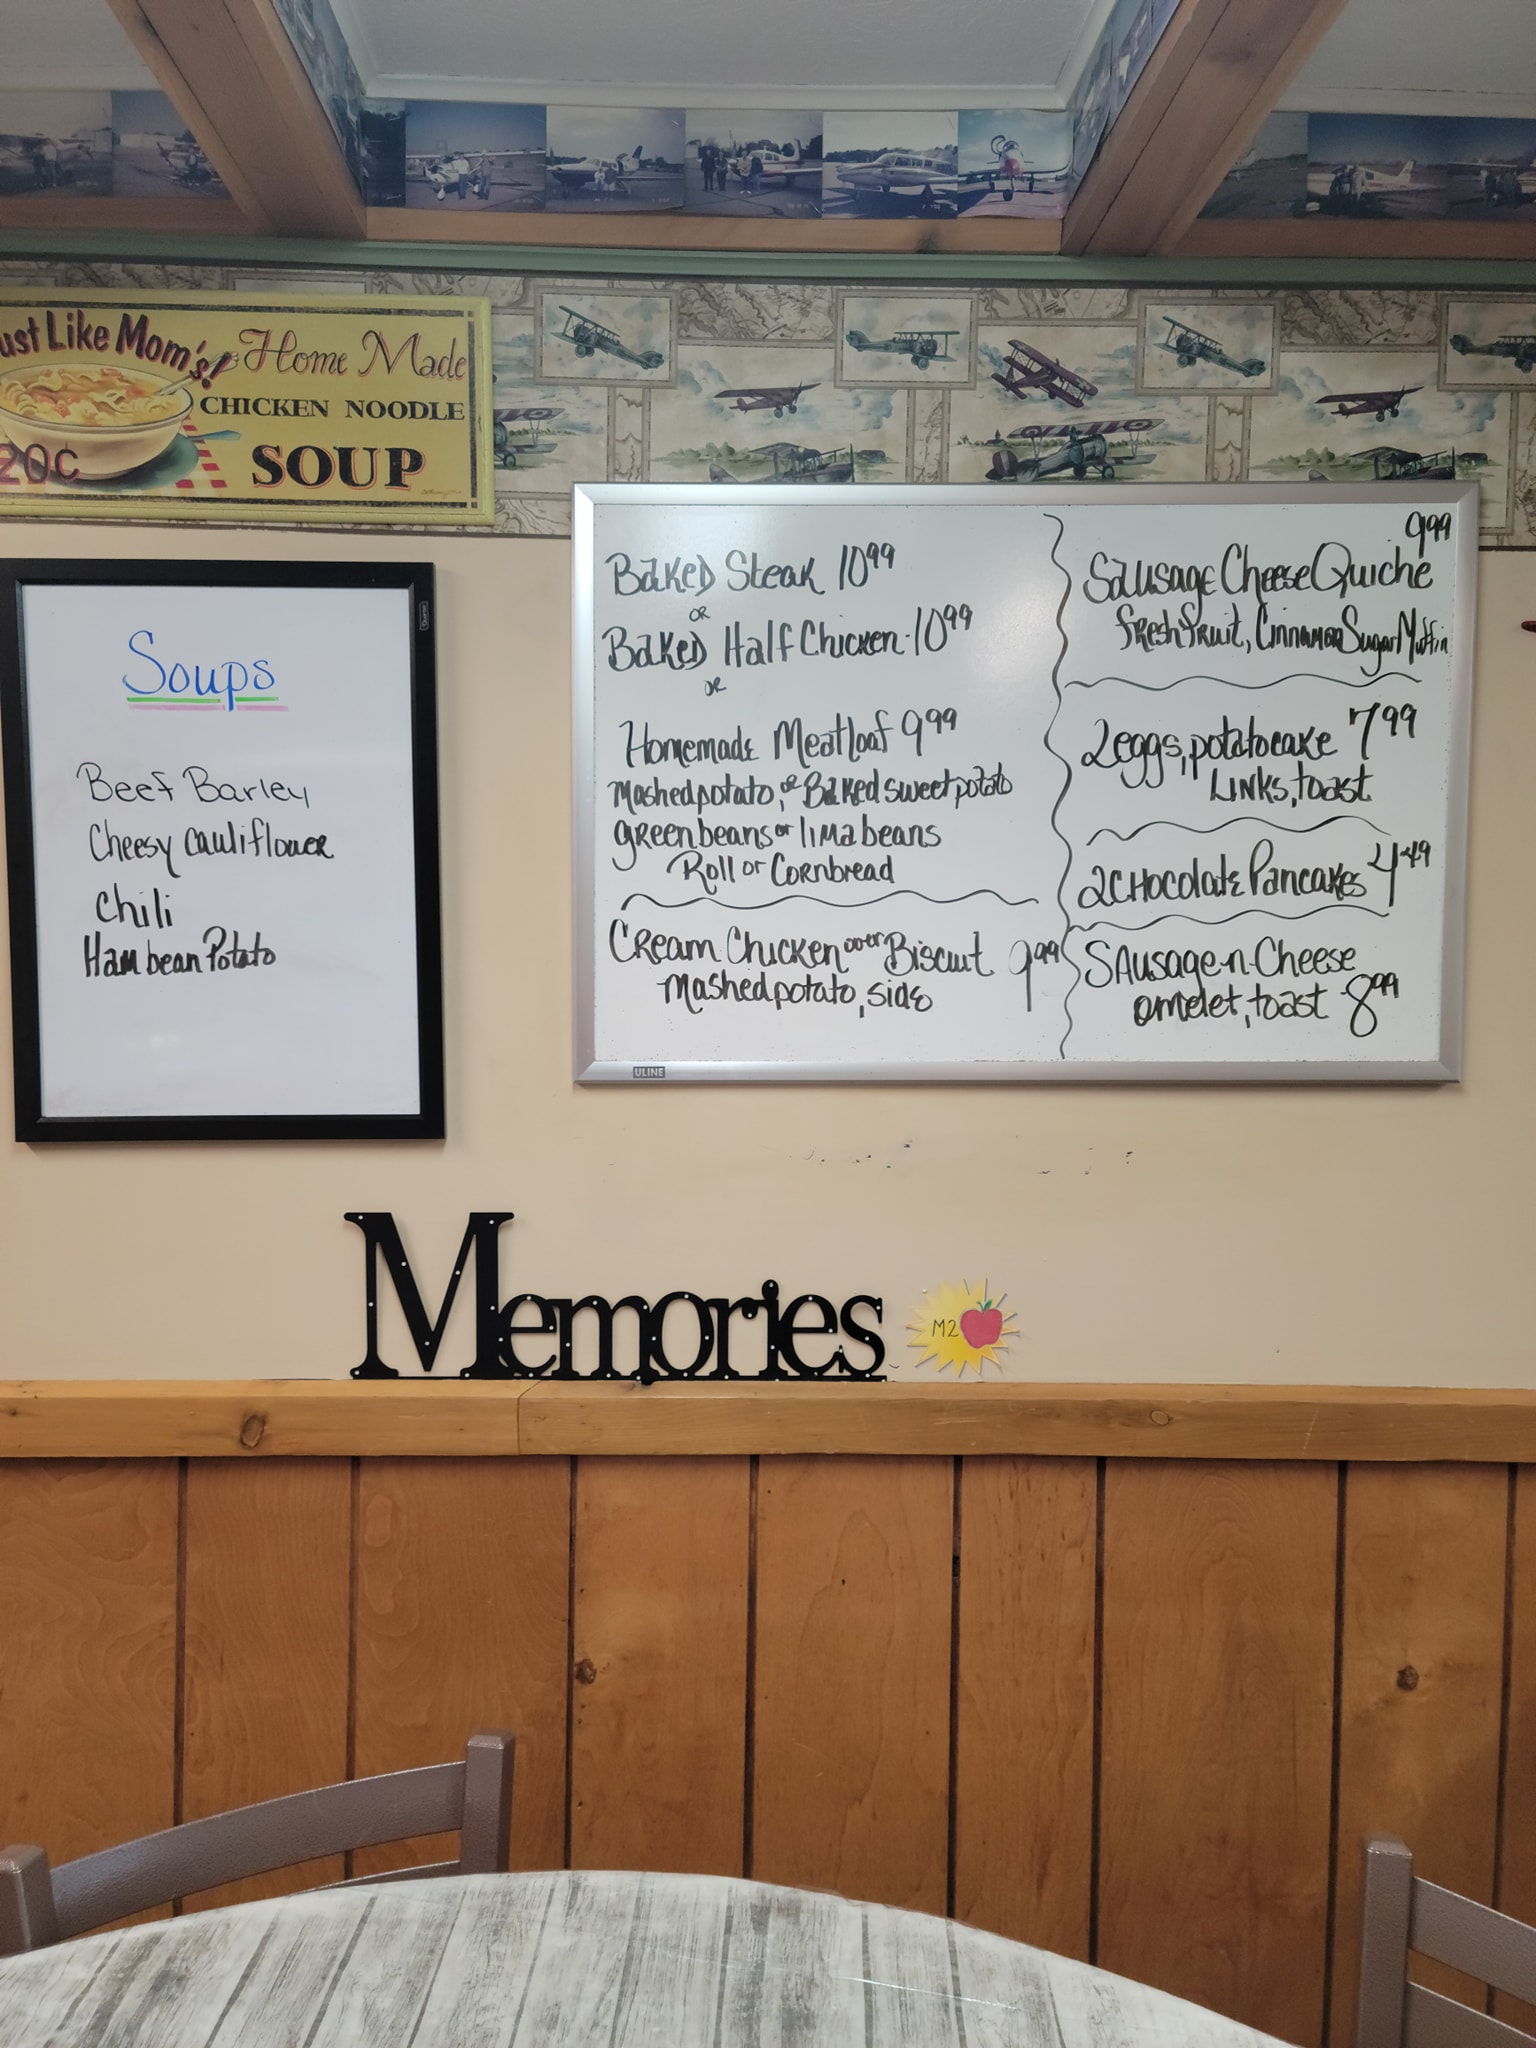 ust Like Mom's!
Home Made
CHICKEN NOODLE
SOUP
20¢
Soups
Beef Barley
Cheesy Cauliflower
Chili
Ham bean Potato
Baked Steak 10⁹⁹
or
Baked Half Chicken-10⁹⁹
or
Homemade Meatloaf 9⁹⁹
Mashed potato, or Baked sweet potato
green beans or lima beans
Roll or Cornbread
Cream Chicken over Biscuit 9⁹⁹
Mashed potato, side
9⁹⁹
Sausage Cheese Quiche
fresh fruit, Cinnamon Sugar Muffin
2 eggs, potato cake 7⁹⁹
Links, toast
2 Chocolate Pancakes 4⁴⁹
Sausage-n-Cheese
omelet, toast -8⁹⁹
ULINE
Memories
M2